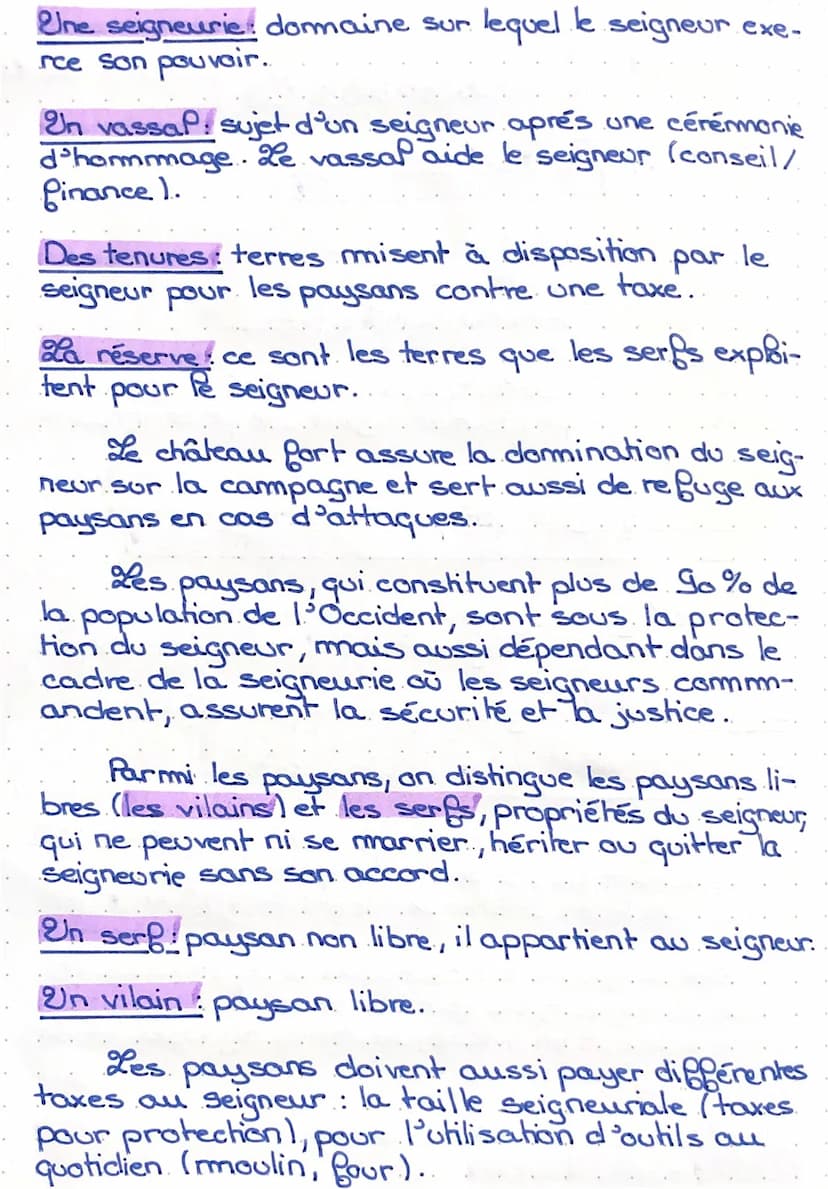 Une seigneurie: domaine sur lequel le seigneur exe-
rce son pouvoir.
Un vassal: sujet d'un seigneur aprés une cérémonie
d'hommage. Le vassal aide le seigneur (conseil/
finance).
Des tenures: terres misent à disposition par le
seigneur pour les paysans contre une taxe.
La réserve: ce sont les terres que les serfs exploi-
tent pour le seigneur.
Le château fort assure la domination du seig-
neur sur la campagne et sert aussi de refuge aux
paysans en cas d'attaques.
Les paysans, qui constituent plus de 90% de
la population de l'Occident, sont sous la protec-
tion du seigneur, mais aussi dépendant dans le
cadre de la seigneurie où les seigneurs comm-
andent, assurent la sécurité et la justice.
Parmi les paysans, on distingue les paysans li-
bres (les vilains) et les serfs, propriétés du seigneur,
qui ne peuvent ni se marrier, hériter ou quitter la
seigneurie sans son accord.
Un serf: paysan non libre, il appartient au seigneur.
Un vilain: paysan libre.
Les paysans doivent aussi payer différentes
taxes au seigneur : la taille seigneuriale (taxes
pour protection), pour l'utilisation d'outils au
quotidien (moulin, four).